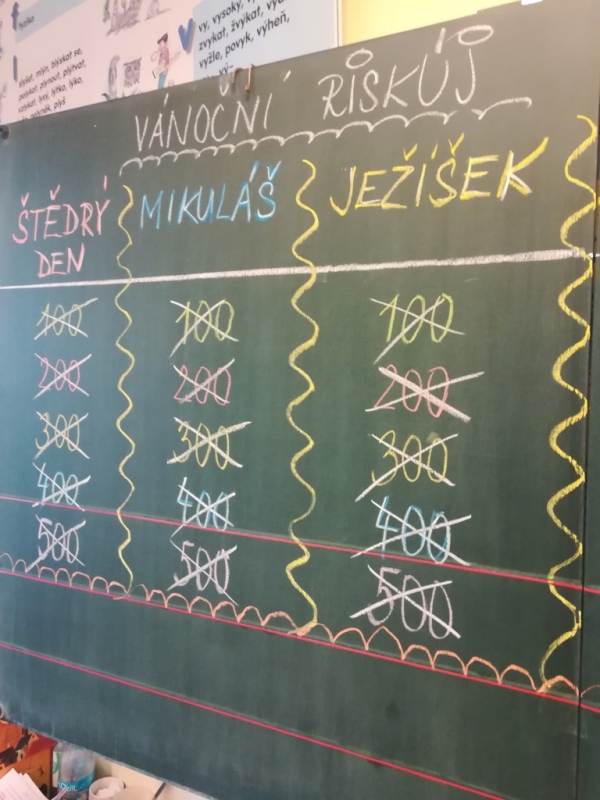 fyzika
slyšet, mlýn, blýskat se,
polykat, plynout, plýtvat,
vzlykat, lysý, lýtko, lýko,
plyš
vy, vysoký,
zvykat, žvýkat,
výžle, povyk, výheň,
vý–
VÁNOČNÍ RISKÚJ
ŠTĚDRÝ DEN
MIKULÁŠ
JEŽÍŠEK
100 100 100
200 200 200
300 300 300
400 400 400
500 500 500